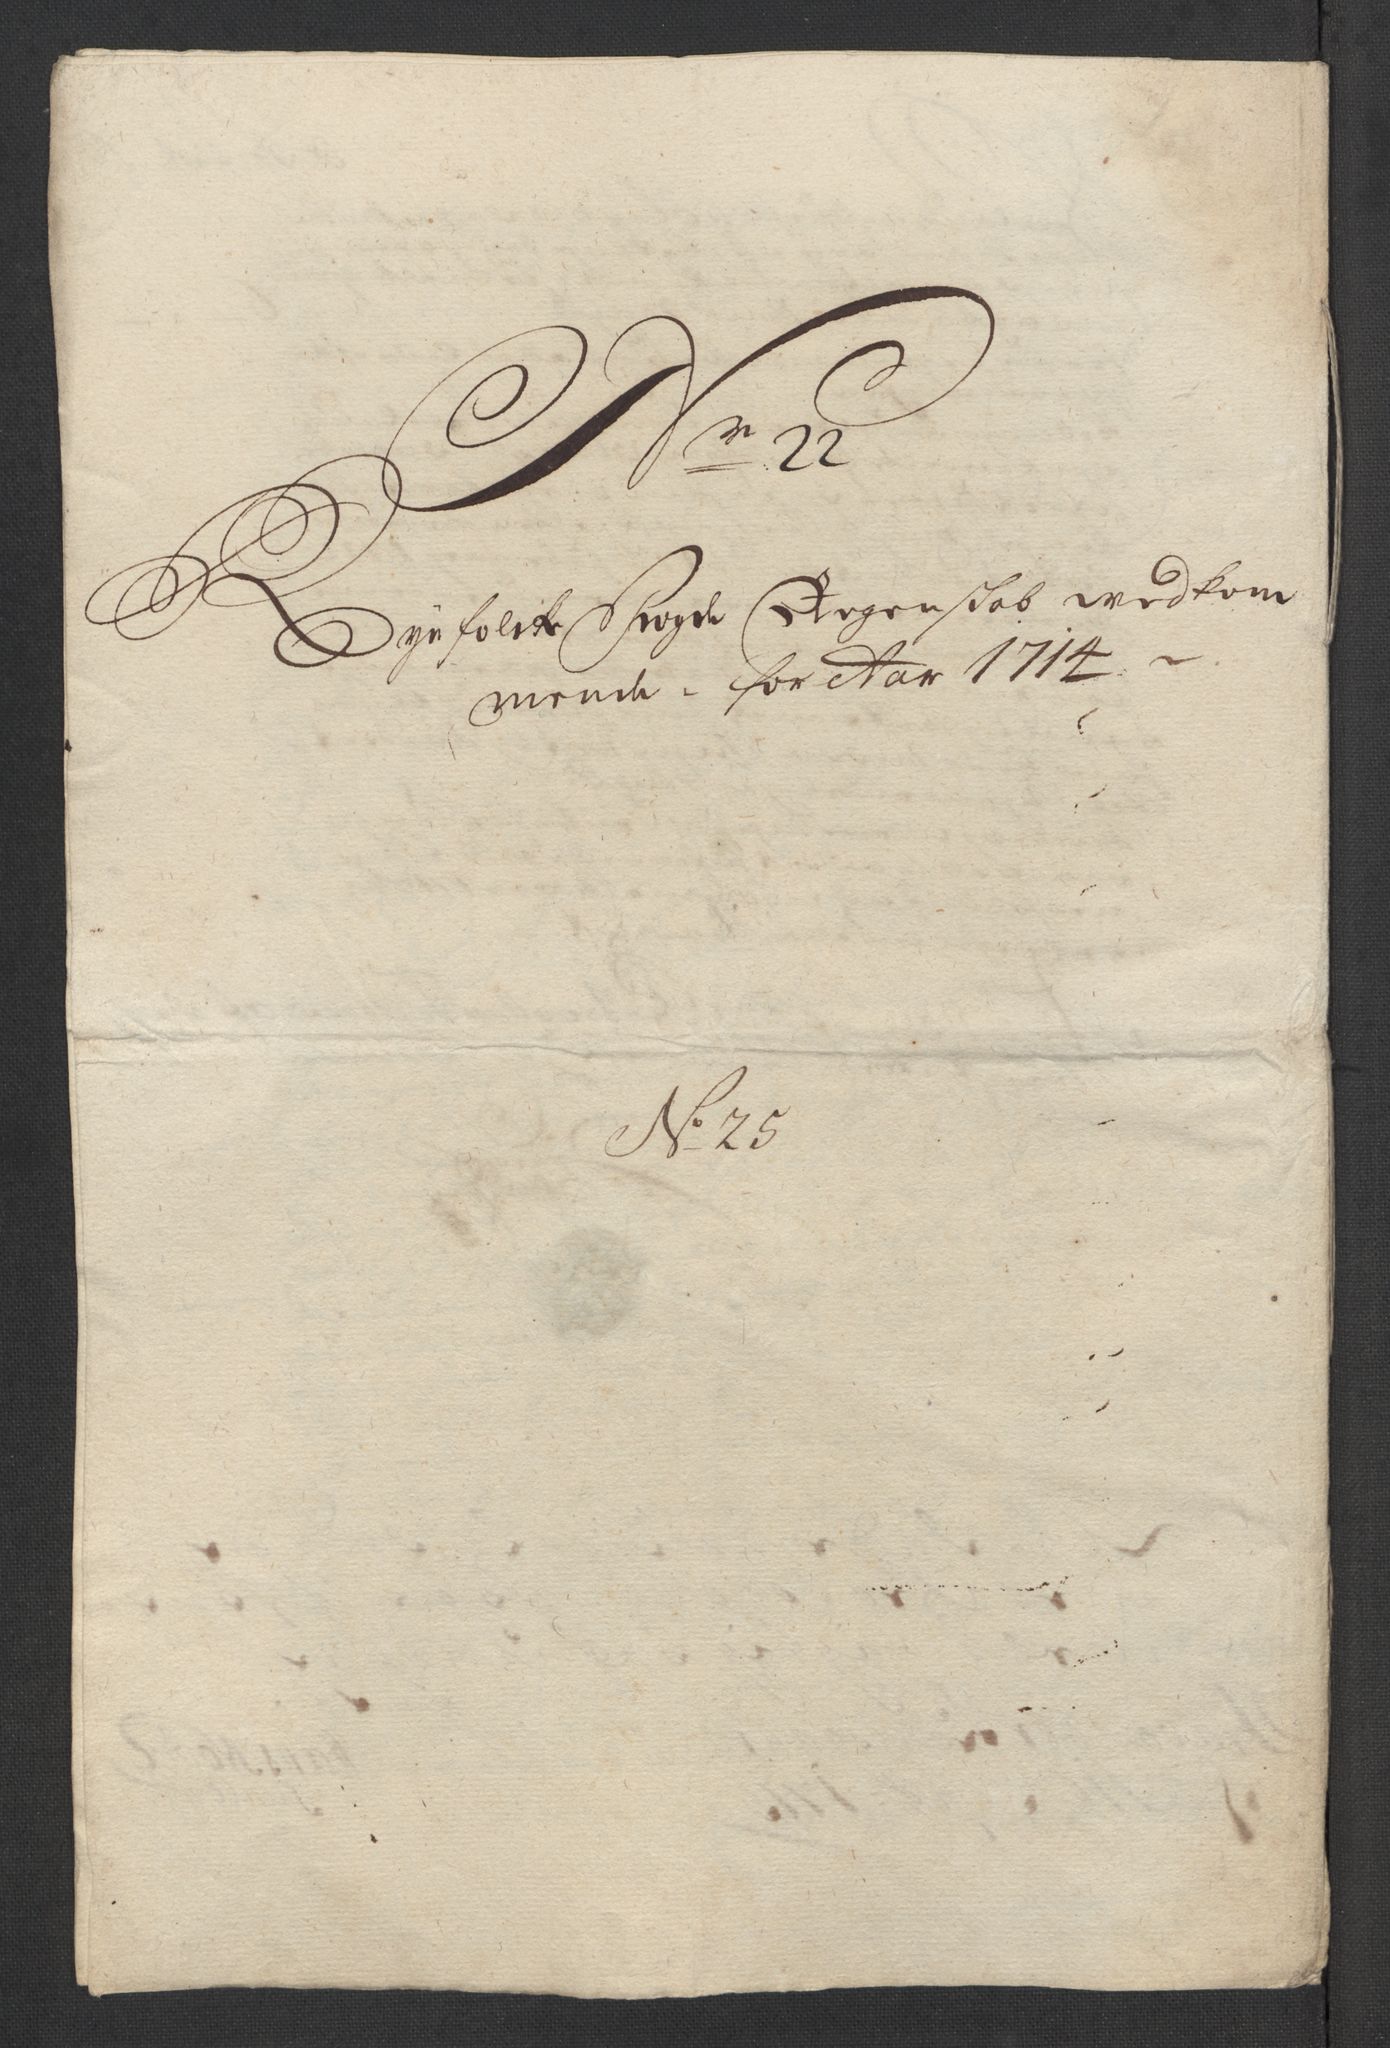 Nr 22
Ryefolcke Fogde Regenskab vedkom
mende - for Aar 1714
No 25